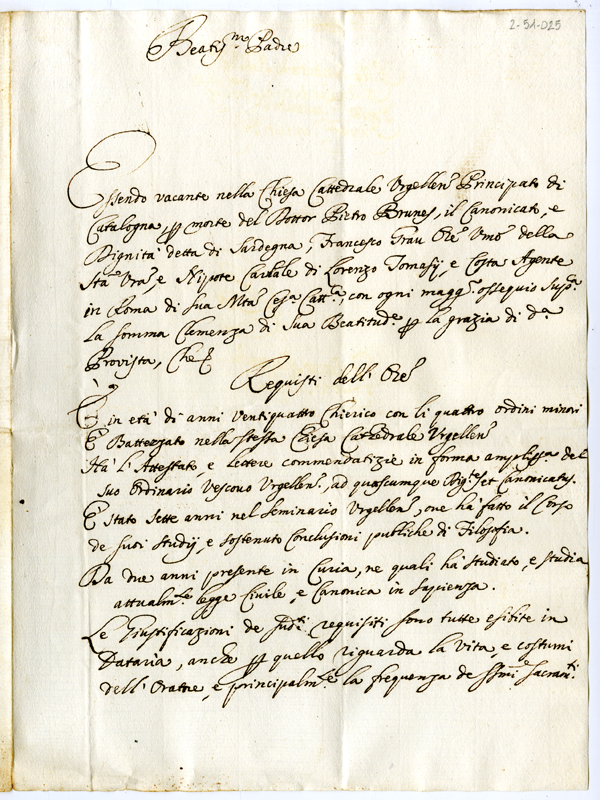 2-51-025
Beatis.mo Padre
Essendo vacante nella Chiesa Cattedrale Urgellens Principato di
Catalogna, p morte del Dottor Pietro Brunes, il Canonicato, e
Dignità detta di Sardegna, Francesco Grau Ore Umo della
Sta Vra, e Nipote Carnale di Lorenzo Tomasij, e Costa Agente
in Roma di Sua Mtà Cesa Catt.ca, con ogni magg.r ossequio Supca
la somma Clemenza di Sua Beatitude p la grazia di da
Provista, Che
Requisiti dell' Ore
È in età di anni ventiquattro Chierico con li quattro ordini minori
È Battezzato nella stessa Chiesa Cathedrale Urgellens
Hà l'Attestato, e lettere commendatizie in forma amplissa del
suo Ordinario Vescovo Urgellens, ad quascumque Dig.es et Canonicatus.
È stato sette anni nel Seminario Urgellens, ove hà fatto il Corso
de suoi studij, e sostenuto Conclusioni publiche di Filosofia.
Da due anni presente in Curia, ne quali hà studiato, e studia
attualm.te legge Civile, e Canonica in Sapienza.
Le Giustificazioni de sud.ti requisiti sono tutte esibite in
Dataria, anche p quello riguarda la vita, e costumi
dell' Oratre, e principalm.te la frequenza de SSmi Sacram.ti